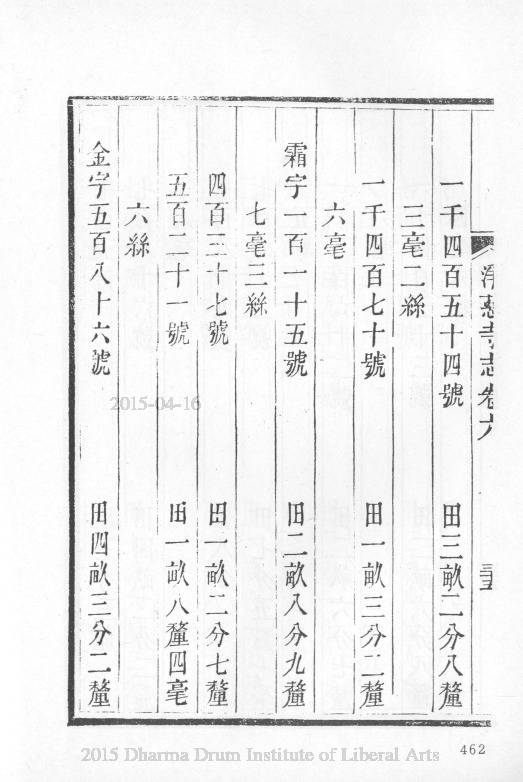 淨慈寺志卷六
一千四百五十四號 田三畝二分八釐
三毫二絲
一千四百七十號 田一畝三分二釐
六毫
霜字一百一十五號 田二畝八分九釐
七毫三絲
四百三十七號 田一畝二分七釐
五百二十一號 田一畝八釐四毫
六絲
金字五百八十六號 田四畝三分二釐
2015-04-16
2015 Dharma Drum Institute of Liberal Arts
462